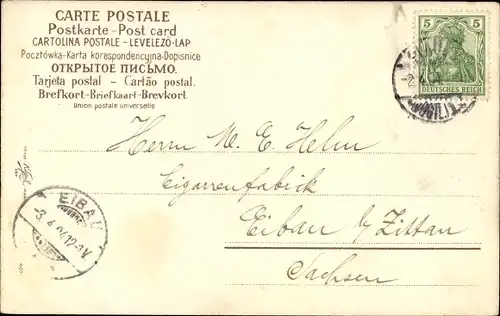 CARTE POSTALE
Postkarte - Post card
CARTOLINA POSTALE - LEVELEZŐ-LAP
Pocztówka - Karta korespondencyjna - Dopisnice
ОТКРЫТОЕ ПИСЬМО.
Tarjeta postal - Cartão postal.
Brefkort - Briefkaart - Brevkort.
Union postale universelle
5 5
DEUTSCHES REICH
Herrn M. E. Helm
Cigarrenfabrick
Eibau b/ Zittau
Sachsen
EIBAU
-3.4.04.12-1V